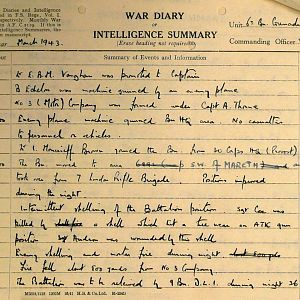 Diaries and Intelligence
d in F.S. Regs., Vol. I.
respectively. Monthly War
d in A.F. C.2119. If this is
Intelligence Summaries, the
n manuscript.
WAR DIARY
OR
INTELLIGENCE SUMMARY
(Erase heading not required).
Unit 6th Bn. Grenadi
Commanding Officer
Year March 1943.
Summary of Events and Information
Lt E.B.M. Vaughan was promoted to Captain
B Echelon was machine gunned by an enemy plane
No 3 (Motor) Company was formed under Capt A. Thorne
Enemy plane machine gunned Bn HQ area. No casualties
to personnel or vehicles.
Lt Moncrieff Brown joined the Bn. from 30 Corps HQ (Provost)
The Bn. moved to area S.W. of MARETH and
took over from 7 Motor Rifle Brigade. Positions improved
during the night
Intermittent shelling of the Battalion position Sgt Coe was
killed by a shell which hit a tree near an ATK gun
position Sgt Hudson was wounded by this shell
Enemy shelling and mortar fire during night
Fire fell 500 yards from No 3 Company.
The Battalion was to be relieved by 9 Bn D.L.I. during night 26
H.B. & Co. Ltd.